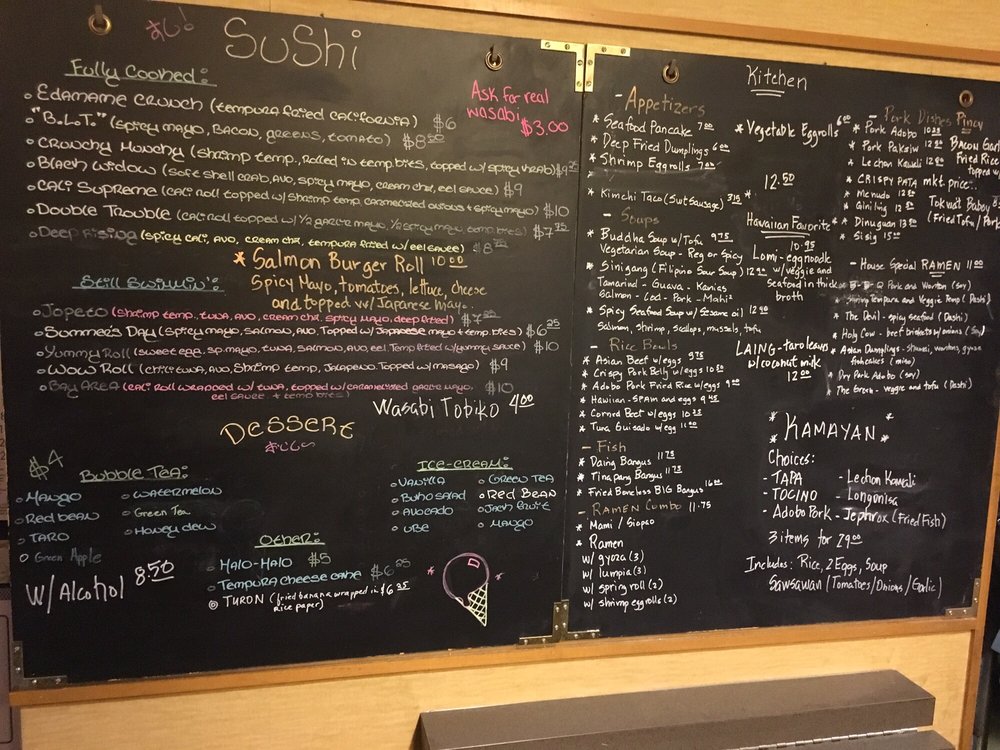 SuShi
Fully Cooked:
Ask for real
wasabi
$3.00
Edamame Crunch (tempura fried California) $6
"B.L.T." (spicy mayo, bacon, greens, tomato) $8
Crunchy Munchy (shrimp temp, rolled in temp bits, topped w/ spicy krab) $9
Black Widow (soft shell crab, avo, spicy mayo, cream chz, eel sauce) $9
Cali Supreme (cali roll topped w/ shrimp temp, carmelized onions + spicy mayo) $10
Double Trouble (cali roll topped w/ 1/2 garlic mayo, 1/2 spicy mayo, temp bites) $7
Deep Rising (spicy cali, avo, cream chz, tempura fried w/ eel sauce) $8
* Salmon Burger Roll 10.00
Spicy Mayo, tomatoes, lettuce, cheese
and topped w/ Japanese Mayo.
Still Swimmin':
(shrimp temp, tuna, avo, cream chz, spicy mayo, deep fried) $7
Summer's Day (spicy mayo, salmon, avo, topped w/ Japanese mayo + temp bites) $6.25
Yummy Roll (sweet egg, sp. mayo, tuna, salmon, avo, eel, temp fried w/ yummy sauce) $10
Wow Roll (chili tuna, avo, shrimp temp, jalapeno, topped w/ masago) $9
Bay Area (cali roll wrapped w/ tuna, topped w/ caramelized garlic mayo, $10
eel sauce + temp bits)
Wasabi Tobiko 4.00
Dessert
$4
Bubble Tea:
Mango
Red bean
Taro
Green Apple
Watermelon
Green Tea
Honeydew
W/Alcohol 8.50
Ice-Cream:
Vanilla
Buko salad
Avocado
Ube
Green Tea
Red Bean
Jack fruit
Mango
Other:
Halo-Halo $5
Tempura cheese cake $6.25
Turon (fried banana wrapped in $6.25
rice paper)
Kitchen
- Appetizers
* Seafood Pancake 7.00
* Deep Fried Dumplings 6.00
* Shrimp Eggrolls 7.00
*
* Kimchi Taco (Sub Sausage) 3.75
* Vegetable Eggrolls 6.00
- Soups
* Buddha Soup w/Tofu 9.75
Vegetarian Soup - Reg or Spicy
* Sinigang (Filipino Sour Soup) 12.90
Tamarind - Guava - Kamias
Salmon - Cod - Pork - Mahi²
* Spicy Seafood Soup w/ Sesame oil 12.90
Salmon, shrimp, scallops, mussels, tofu
- Rice Bowls
* Asian Beef w/eggs 9.75
* Crispy Pork Belly w/eggs 10.50
* Adobo Pork Fried Rice w/eggs 9.00
* Hawiian - SPAM and eggs 9.45
* Corned Beef w/eggs 10.25
* Tuna Guisado w/egg 11.00
- Fish
* Daing Bangus 11.75
* Tinapang Bangus 11.75
* Fried Boneless BIG Bangus 16.00
- Ramen Combo 11.75
* Mami / Siopao
* Ramen
w/ gyoza (3)
w/ lumpia (3)
w/ spring roll (2)
w/ shrimp eggrolls (2)
12.50
*
Hawaiian Favorite
10.95
Lomi - egg noodle
w/ veggie and
seafood in thick
broth
LAING - taro leaves
w/ coconut milk
12.00
- Pork Dishes Pinoy
* Pork Adobo 10.25
* Pork Pakaiw 12.90
* Lechon Kawali 12.90
* CRISPY PATA mkt price.
* Menudo 12.00
* Giniling 12.00
* Dinuguan 13.00
* Sisig 15.00
BACON Garl
Fried Rice
topped w/
Tokwat Baboy 8
(Fried Tofu / Pork
- House Special RAMEN 11.00
* B-B-Q Pork and Wonton (soy)
* Shrimp Tempura and Veggie Temp (Dashi)
* The Devil - spicy seafood (Dashi)
* Holy Cow - beef briskets w/ onions (Soy)
* Asian Dumplings - Siumai, wontons, gyoza
fishcakes (miso)
* Dry Pork Adobo (soy)
* The Green - veggie and tofu (Dashi)
* KAMAYAN *
Choices:
- TAPA
- TOCINO
- Adobo Pork
- Lechon Kawali
- Longonisa
- Jephrox (Fried Fish)
3 items for 29.00
Includes: Rice, 2 Eggs, Soup
Sawsawan (Tomatoes/Onions/Garlic)